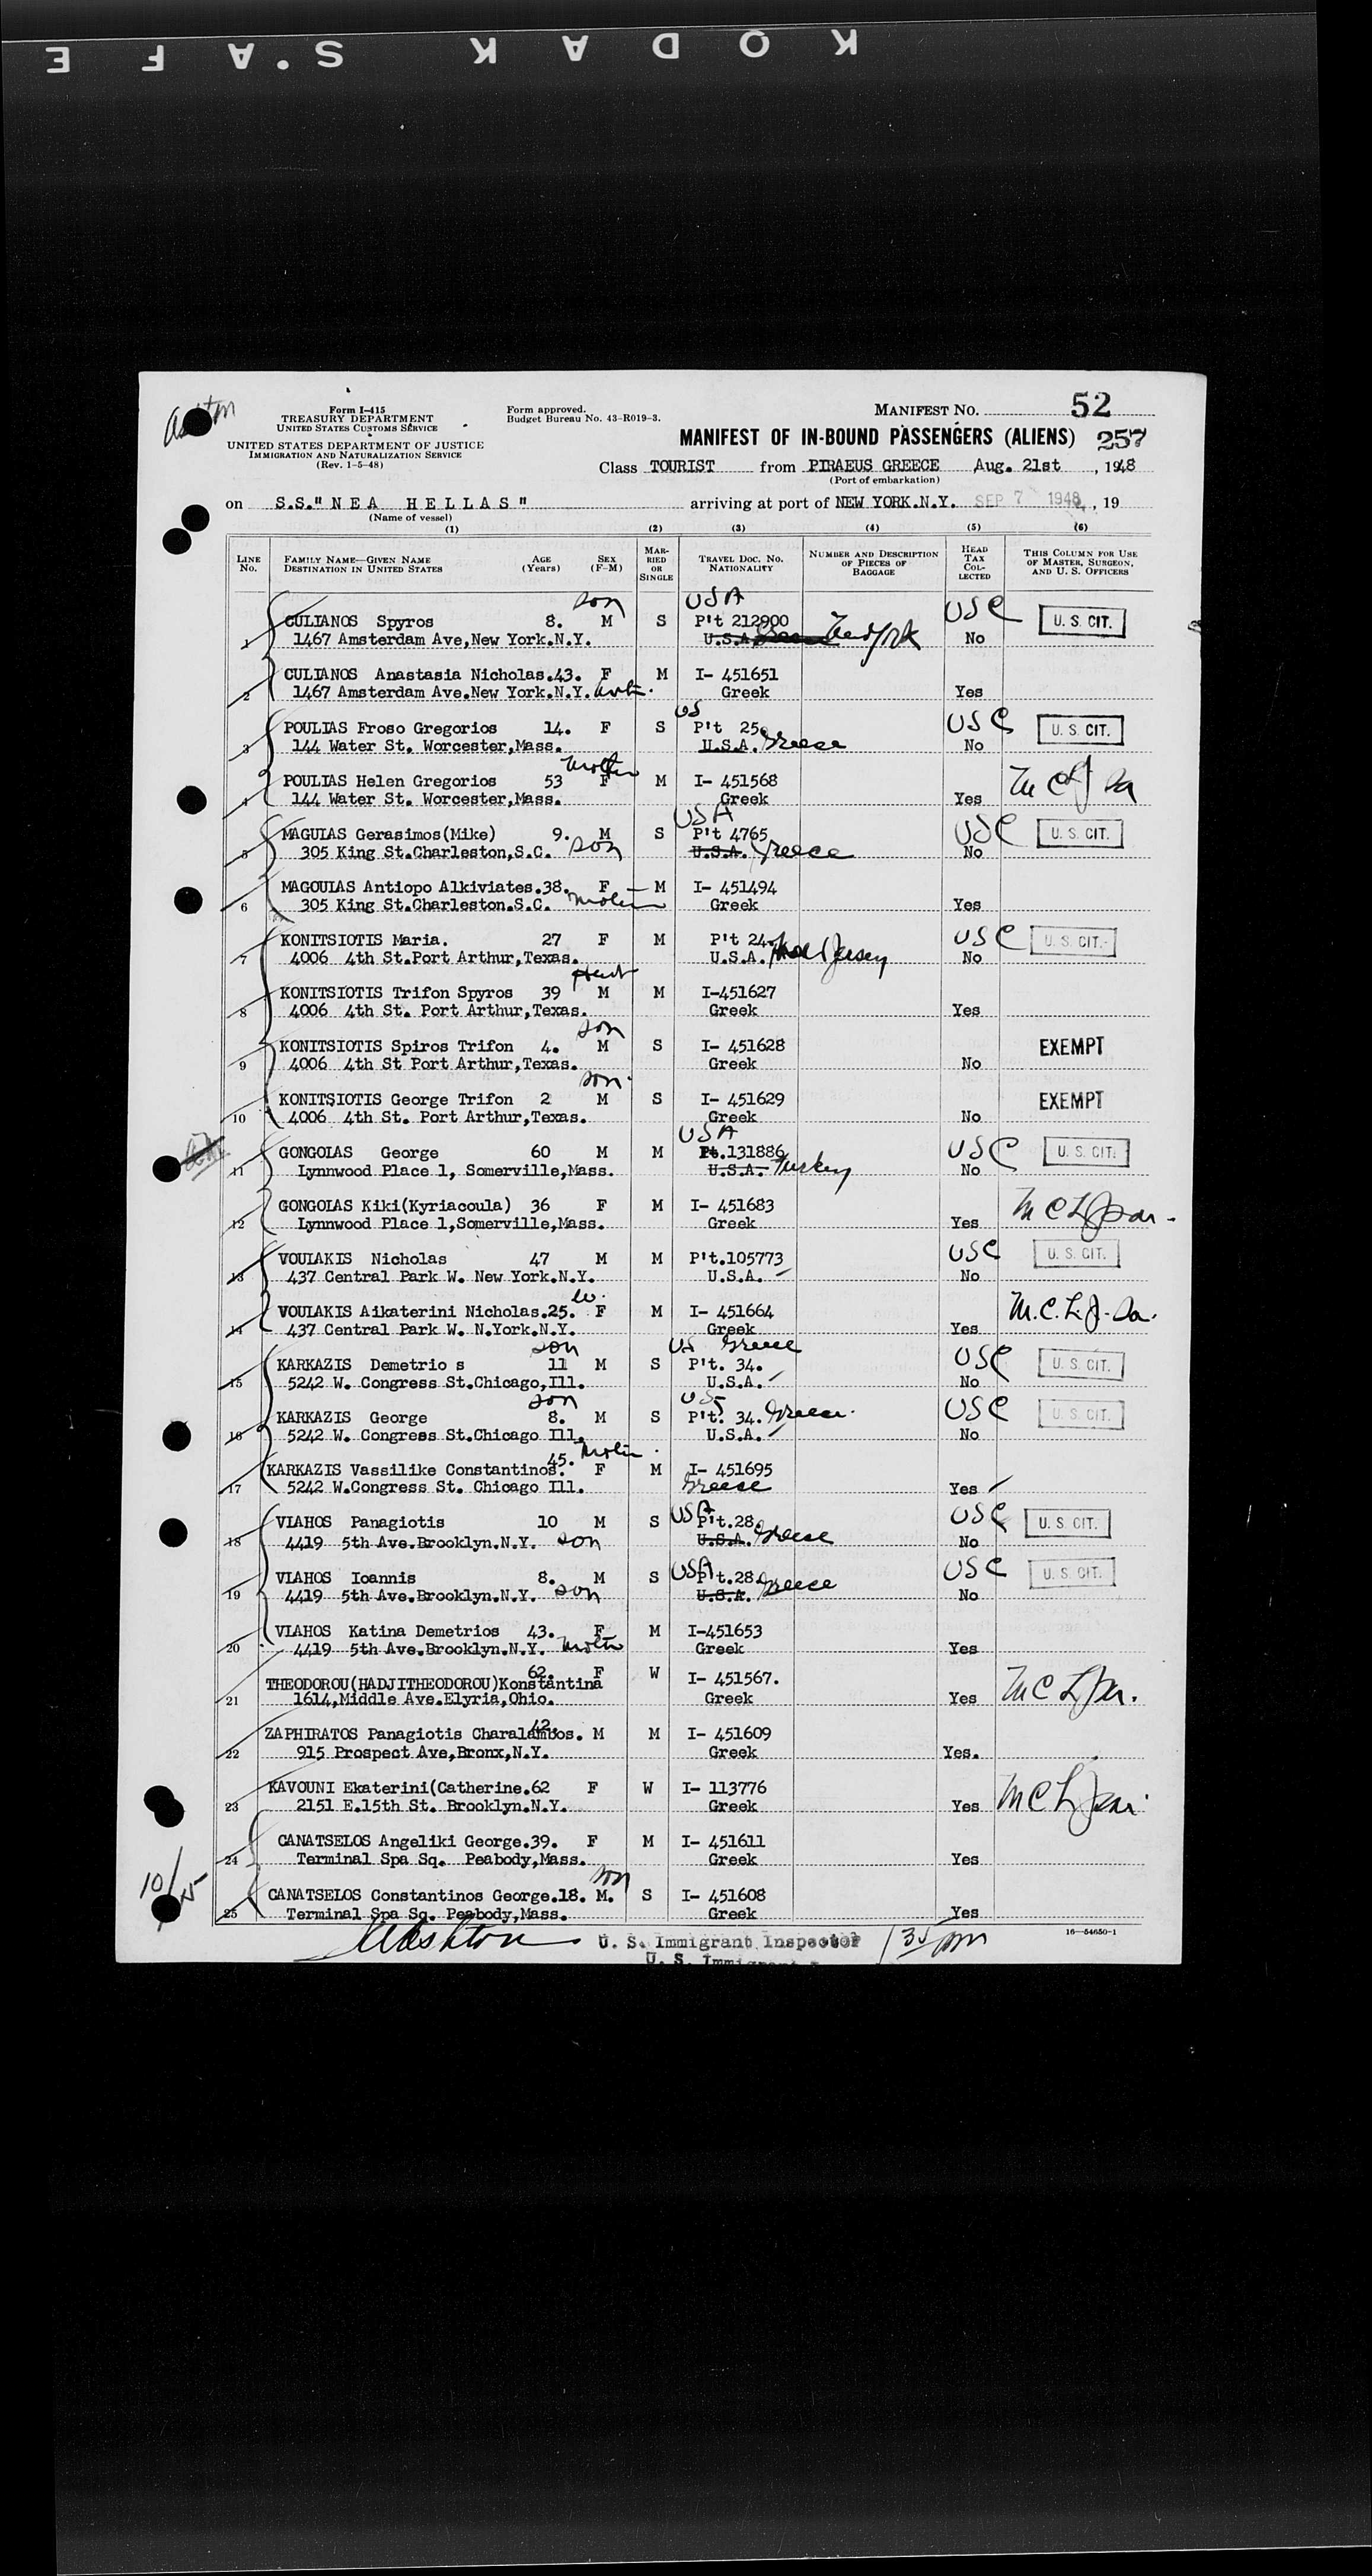 KODAK S.A F E
Form I-415
TREASURY DEPARTMENT
UNITED STATES CUSTOMS SERVICE
UNITED STATES DEPARTMENT OF JUSTICE
IMMIGRATION AND NATURALIZATION SERVICE
(Rev. 1-5-48)
Form approved.
Budget Bureau No. 43-R019-3.
MANIFEST NO. 52
MANIFEST OF IN-BOUND PASSENGERS (ALIENS) 257
Class TOURIST from PIRAEUS GREECE Aug. 21st, 1948
(Port of embarkation)
on S.S."NEA HELLAS" arriving at port of NEW YORK.N.Y. SEP 7 1948, 19
(Name of vessel)
(1) (2) (3) (4) (5) (6)
LINE No. FAMILY NAME—GIVEN NAME DESTINATION IN UNITED STATES AGE (Years) SEX (F-M) MARRIED OR SINGLE TRAVEL DOC. NO. NATIONALITY NUMBER AND DESCRIPTION OF PIECES OF BAGGAGE HEAD TAX COLLECTED THIS COLUMN FOR USE OF MASTER, SURGEON, AND U. S. OFFICERS
son USA
CULIANOS Spyros 8. M S P't 212900 USC U. S. CIT.
1 1467 Amsterdam Ave,New York.N.Y. U.S.A. New York No
CULIANOS Anastasia Nicholas.43. F M I- 451651
2 1467 Amsterdam Ave.New York.N.Y. Greek Yes
US
POULIAS Froso Gregorios 14. F S P't 25. USC U. S. CIT.
3 144 Water St. Worcester,Mass. U.S.A. Greece No
mother
POULIAS Helen Gregorios 53 F M I- 451568
4 144 Water St. Worcester,Mass. Greek Yes
USA
MAGULAS Gerasimos(Mike) 9. M S P't 4765 USC U. S. CIT.
5 305 King St.Charleston,S.C. son U.S.A. Greece No
MAGOULAS Antiopo Alkiviates.38. F M I- 451494
6 305 King St.Charleston.S.C. mother Greek Yes
KONITSIOTIS Maria. 27 F M P't 24. USC U. S. CIT.
7 4006 4th St.Port Arthur,Texas. U.S.A. New Jersey No
KONITSIOTIS Trifon Spyros 39 M M I-451627
8 4006 4th St. Port Arthur,Texas. Greek Yes
son
KONITSIOTIS Spiros Trifon 4. M S I- 451628 EXEMPT
9 4006 4th St Port Arthur,Texas. Greek No
son
KONITSIOTIS George Trifon 2 M S I- 451629 EXEMPT
10 4006 4th St. Port Arthur,Texas. Greek No
USA
GONGOLAS George 60 M M Pt.131886 USC U. S. CIT.
11 Lynnwood Place 1, Somerville,Mass. U.S.A. Turkey No
GONGOLAS Kiki(Kyriacoula) 36 F M I- 451683
12 Lynnwood Place 1,Somerville,Mass. Greek Yes
VOULAKIS Nicholas 47 M M P't.105773 USC U. S. CIT.
13 437 Central Park W. New York.N.Y. U.S.A. No
w.
VOULAKIS Aikaterini Nicholas.25. F M I- 451664
14 437 Central Park W. N.York.N.Y. Greek Yes
son US Greece
KARKAZIS Demetrio s 11 M S P't. 34. USC U. S. CIT.
15 5242 W. Congress St.Chicago,Ill. U.S.A. No
son US
KARKAZIS George 8. M S P't. 34. Greece USC U. S. CIT.
16 5242 W. Congress St.Chicago Ill. U.S.A. No
KARKAZIS Vassilike Constantinos. 45. mother F M I- 451695
17 5242 W.Congress St. Chicago Ill. Greece Yes
USA
VLAHOS Panagiotis 10 M S P't.28. USC U. S. CIT.
18 4419 5th Ave.Brooklyn.N.Y. son U.S.A. Greece No
USA
VLAHOS Ioannis 8. M S P't.28. USC U. S. CIT.
19 4419 5th Ave.Brooklyn.N.Y. son U.S.A. Greece No
VLAHOS Katina Demetrios 43. F M I-451653
20 4419 5th Ave.Brooklyn.N.Y. mother Greek Yes
THEODOROU(HADJITHEODOROU)Konstantina 62. F W I- 451567.
21 1614,Middle Ave.Elyria,Ohio. Greek Yes
ZAPHIRATOS Panagiotis Charalambos. 42. M M I- 451609
22 915 Prospect Ave,Bronx,N.Y. Greek Yes.
KAVOUNI Ekaterini(Catherine.62 F W I- 113776
23 2151 E.15th St. Brooklyn.N.Y. Greek Yes
CANATSELOS Angeliki George.39. F M I- 451611
24 Terminal Spa Sq. Peabody,Mass. Greek Yes
son
CANATSELOS Constantinos George.18. M. S I- 451608
25 Terminal Spa Sq. Peabody,Mass. Greek Yes
10/15
U. S. Immigrant Inspector
16—54650-1